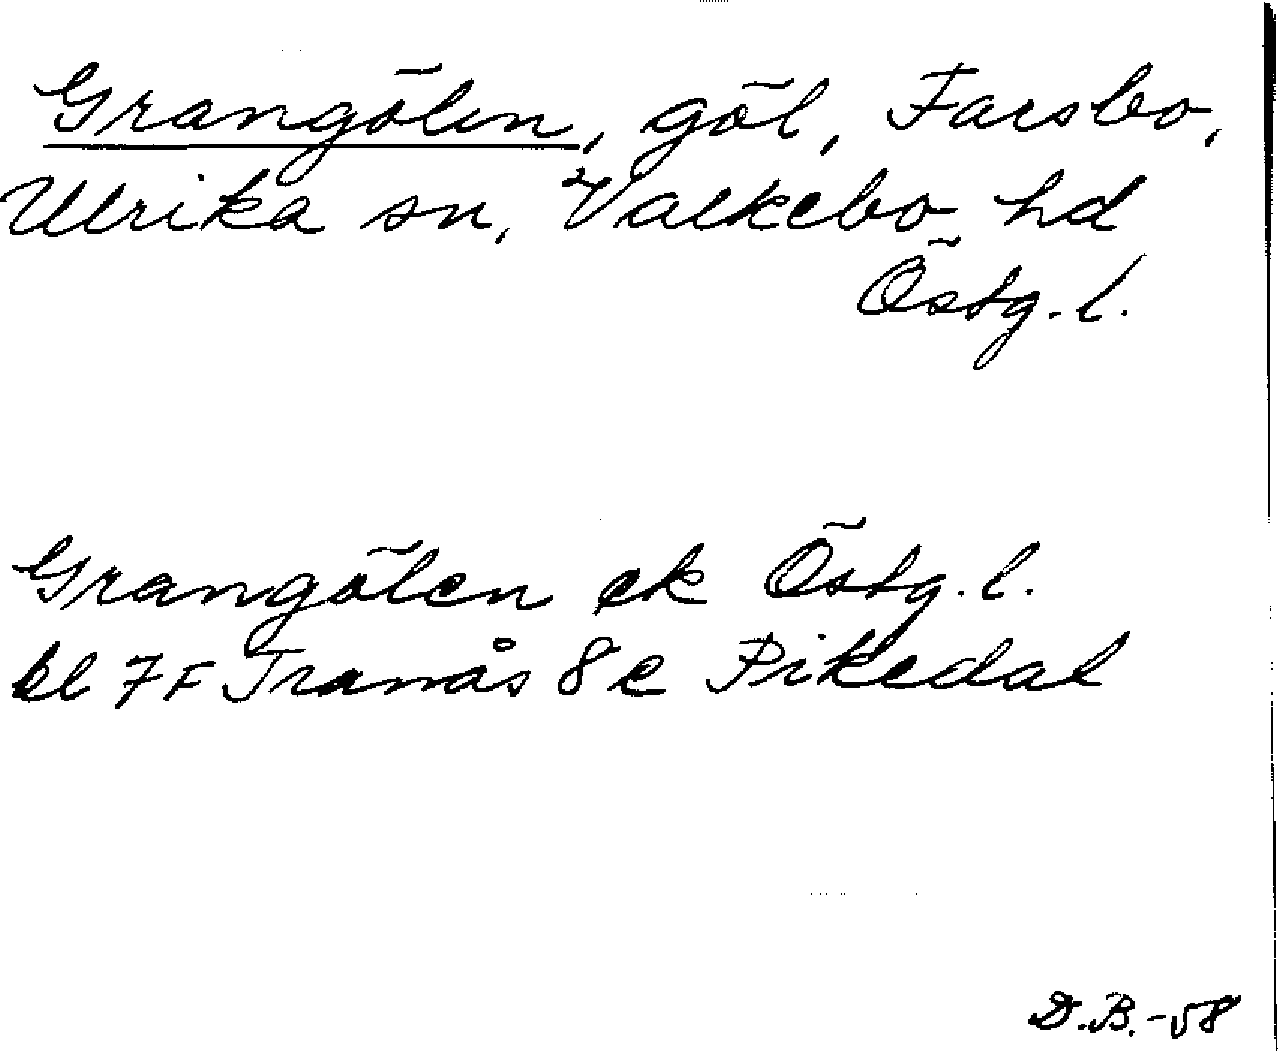 Grangölen, göl, Farsbo,
Ulrika sn, Valkebo hd
Östg. l.
Grangölen ek Östg. l.
bl 7 F Tranås 8 e Pikedal
D.B. -58